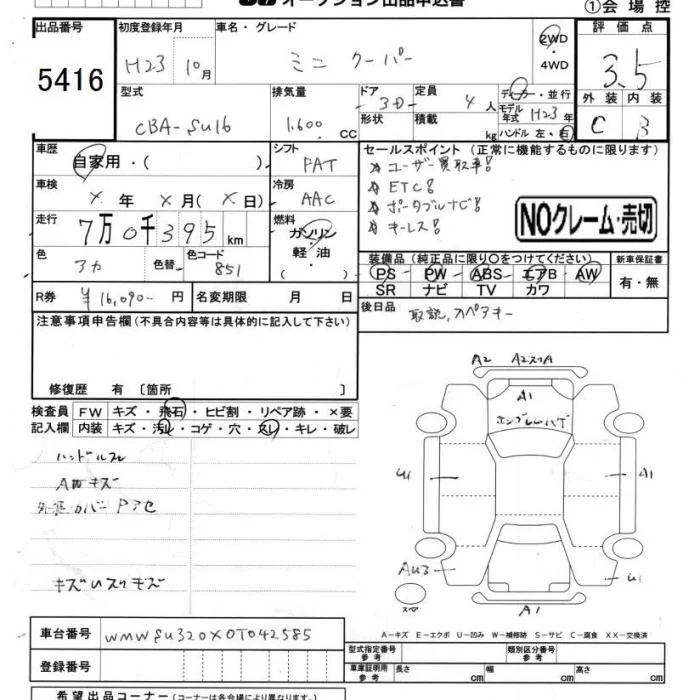 オークション出品申込書
①会場控
出品番号
5416
初度登録年月
H23 10月
車名・グレード
ミニ クーパー
2WD
・
4WD
評価点
3.5
外装 内装
C B
型式
CBA-SU16
排気量
1.600 CC
ドア
3D
形状
定員
4人
積載
kg
ディーラー・並行
モデル年式 H23年
ハンドル 左・右
車歴
自家用・( )
シフト
FAT
車検
X年 X月(X日)
冷房
AAC
走行
7万0千395km
燃料
ガソリン
・
軽油
( )
色
アカ
色替
色コード
851
R券
¥16,090- 円
名変期限 月 日
セールスポイント(正常に機能するものに限ります)
ユーザー買取車!
ETC!
ポータブルナビ!
キーレス!
NOクレーム・売切
装備品(純正品に限り○をつけてください)
PS PW ABS エアB AW
SR ナビ TV カワ
新車保証書
有・無
後日品
取説、スペアキー
注意事項申告欄(不具合内容等は具体的に記入して下さい)
修復歴 有〔箇所 〕
検査員
記入欄
FW キズ・飛石・ヒビ割・リペア跡・×要
内装 キズ・汚れ・コゲ・穴・スレ・キレ・破レ
ハンドルスレ
AWキズ
キズUスリキズ
A2 A2スリA
A1
U1
A1
AU3
U1
スペア
A1
A-キズ E-エクボ U-凹み W-補修跡 S-サビ C-腐食 XX-交換済
車台番号
WMWSU320X0T042585
登録番号
型式指定番号
参考
類別区分番号
参考
車庫証明用
参考
長さ cm
幅 cm
高さ cm
希望出品コーナー(コーナーは各会場により異なります)